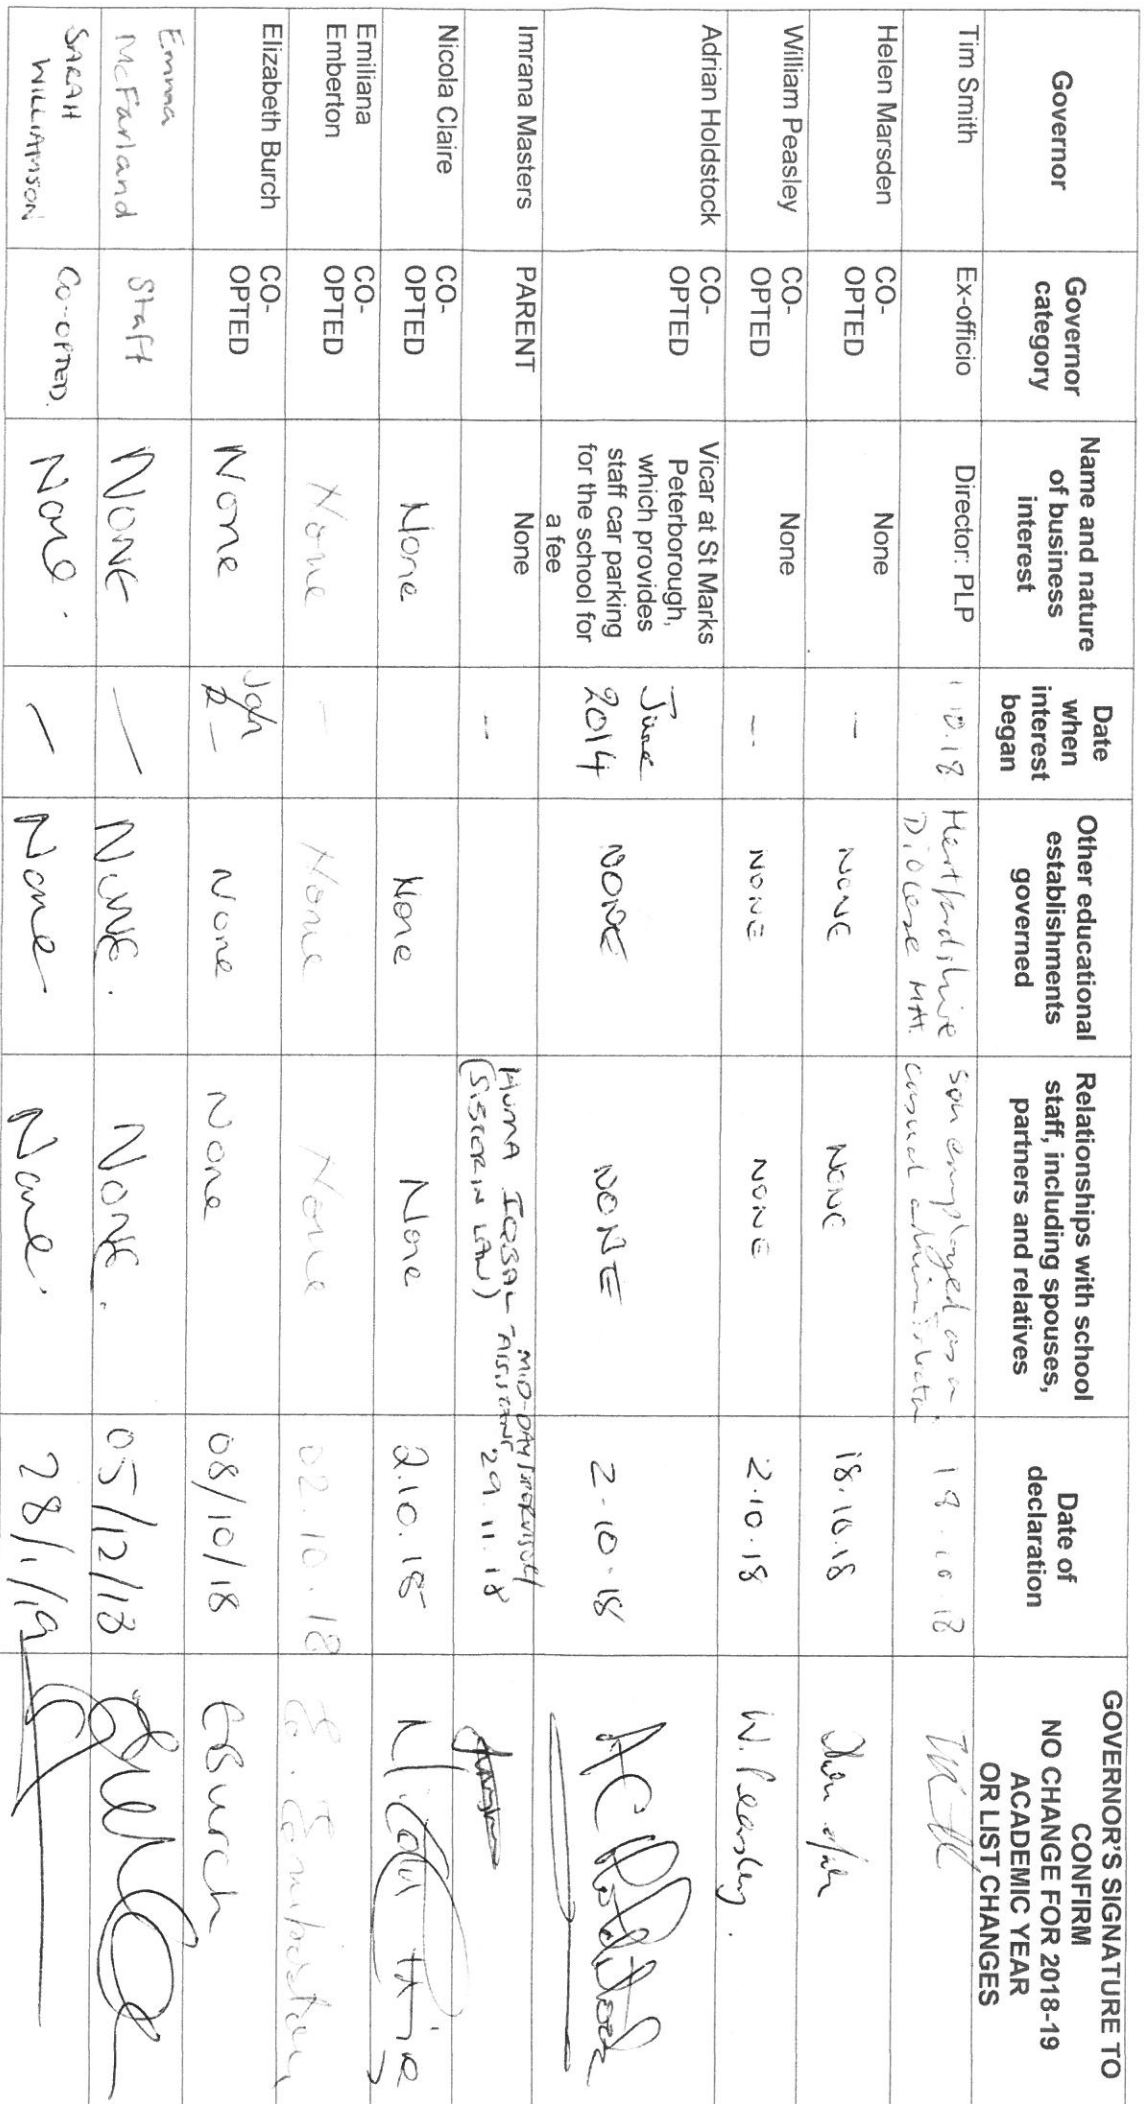 Governor
Governor
category
Name and nature
of business
interest
Date
when
interest
began
Other educational
establishments
governed
Relationships with school
staff, including spouses,
partners and relatives
Date of
declaration
GOVERNOR'S SIGNATURE TO
CONFIRM
NO CHANGE FOR 2018-19
ACADEMIC YEAR
OR LIST CHANGES
Tim Smith
Ex-officio
Director: PLP
1.10.18
Hertfordshire
Diocese MAT.
Son employed as a
casual administrator
18.10.18
Helen Marsden
CO-
OPTED
None
–
NONE
NONE
18.10.18
William Peasley
CO-
OPTED
None
--
NONE
NONE
2.10.18
W. Peasley.
Adrian Holdstock
CO-
OPTED
Vicar at St Marks
Peterborough,
which provides
staff car parking
for the school for
a fee
June
2014
NONE
NONE
2-10-18
AC Holdstock
Imrana Masters
PARENT
None
--
HUMA IQBAL - MID-DAY SUPERVISORY
(SISTER IN LAW) ASSISTANT
29.11.18
Nicola Claire
CO-
OPTED
None
None
None
2.10.18
Emiliana
Emberton
CO-
OPTED
None
–
None
None
02.10.18
E. Emberton
Elizabeth Burch
CO-
OPTED
None
–
None
None
08/10/18
EBurch
Emma
McFarland
Staff
NONE
—
NONE.
NONE.
05/12/18
SARAH
WILLIAMSON
CO-OPTED.
None.
–
None
None.
28/1/19